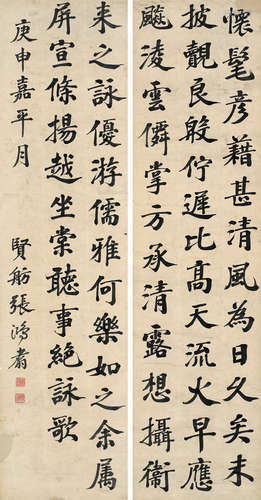 懷髦彦藉甚清風為日久矣未
披覿良殷佇遲比高天流火早應
飈凌雲僊掌方承清露想攝衞
来之詠優游儒雅何樂如之余属
屏宣條揚越坐棠聽事絶詠歌
庚申嘉平月
賢舫張鴻翥